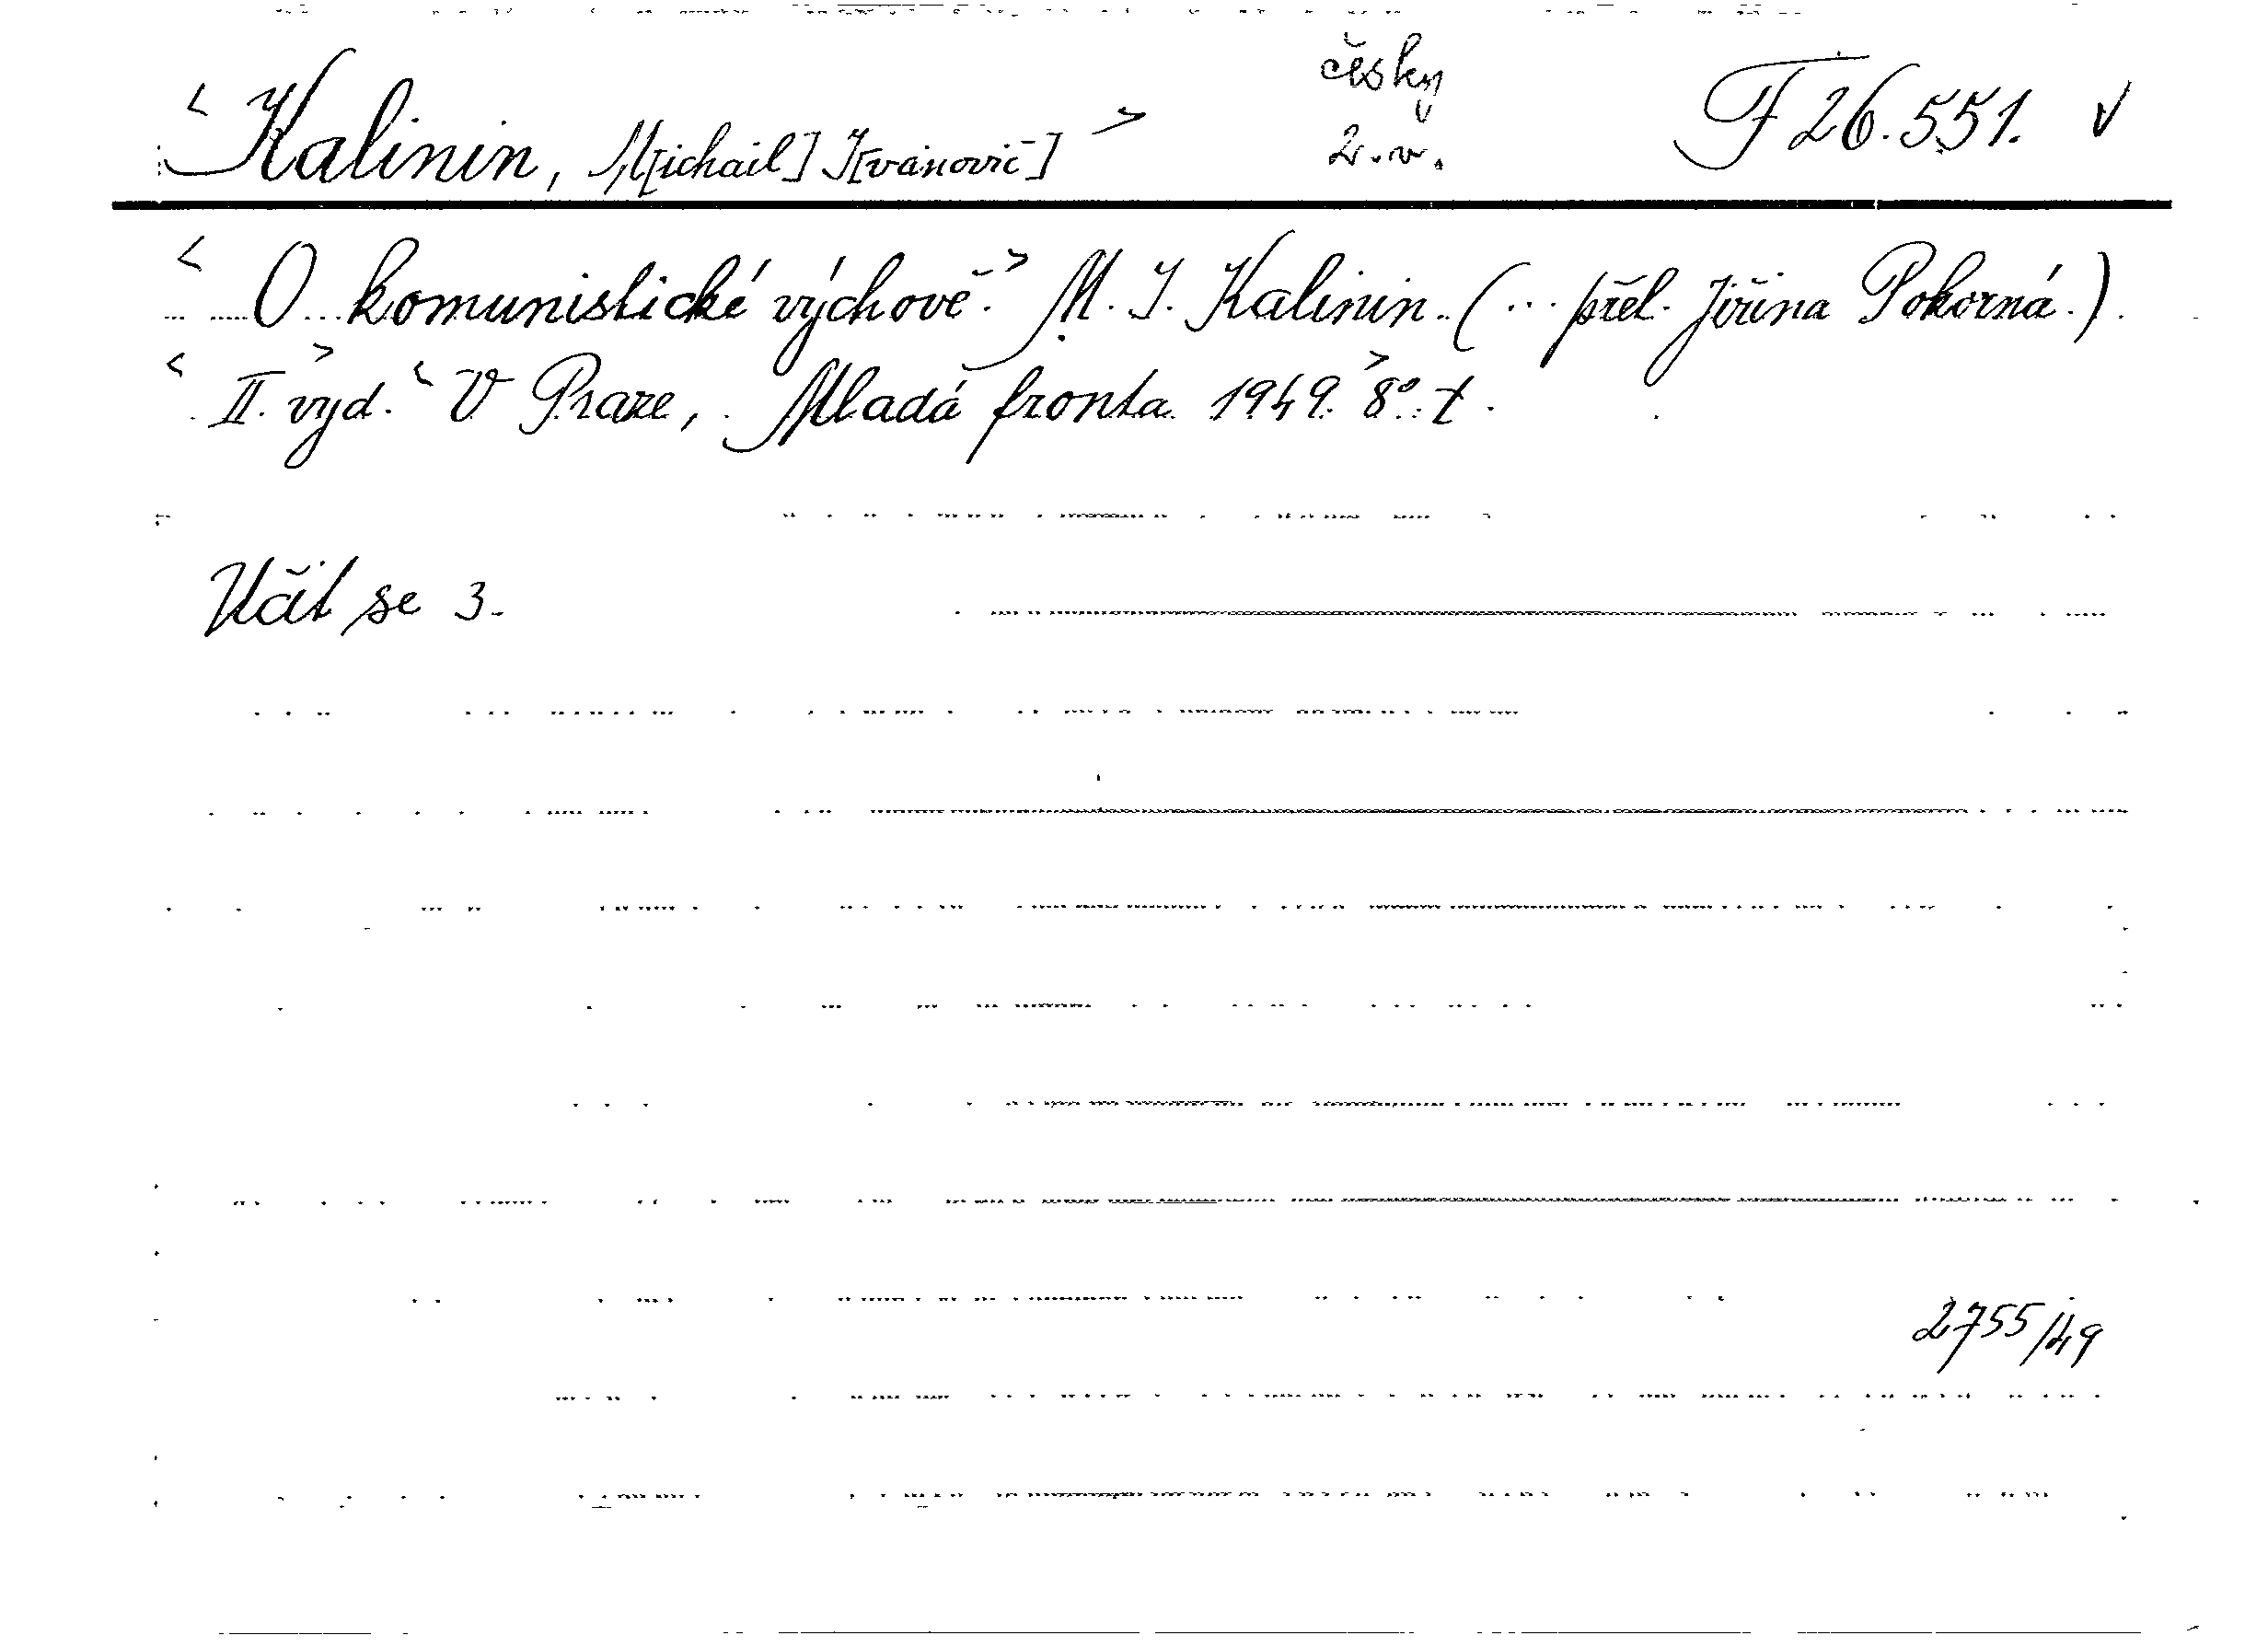 česky
< Kalinin, M[ichail] I[vanovič] > 2. v. F 26.551. v
< O komunistické výchově. > M. I. Kalinin. (... přel. Jiřina Pokorná.)
< II. vyd. > < V Praze, Mladá fronta 1949. > 8°. t.
Učit se 3.
2755/49